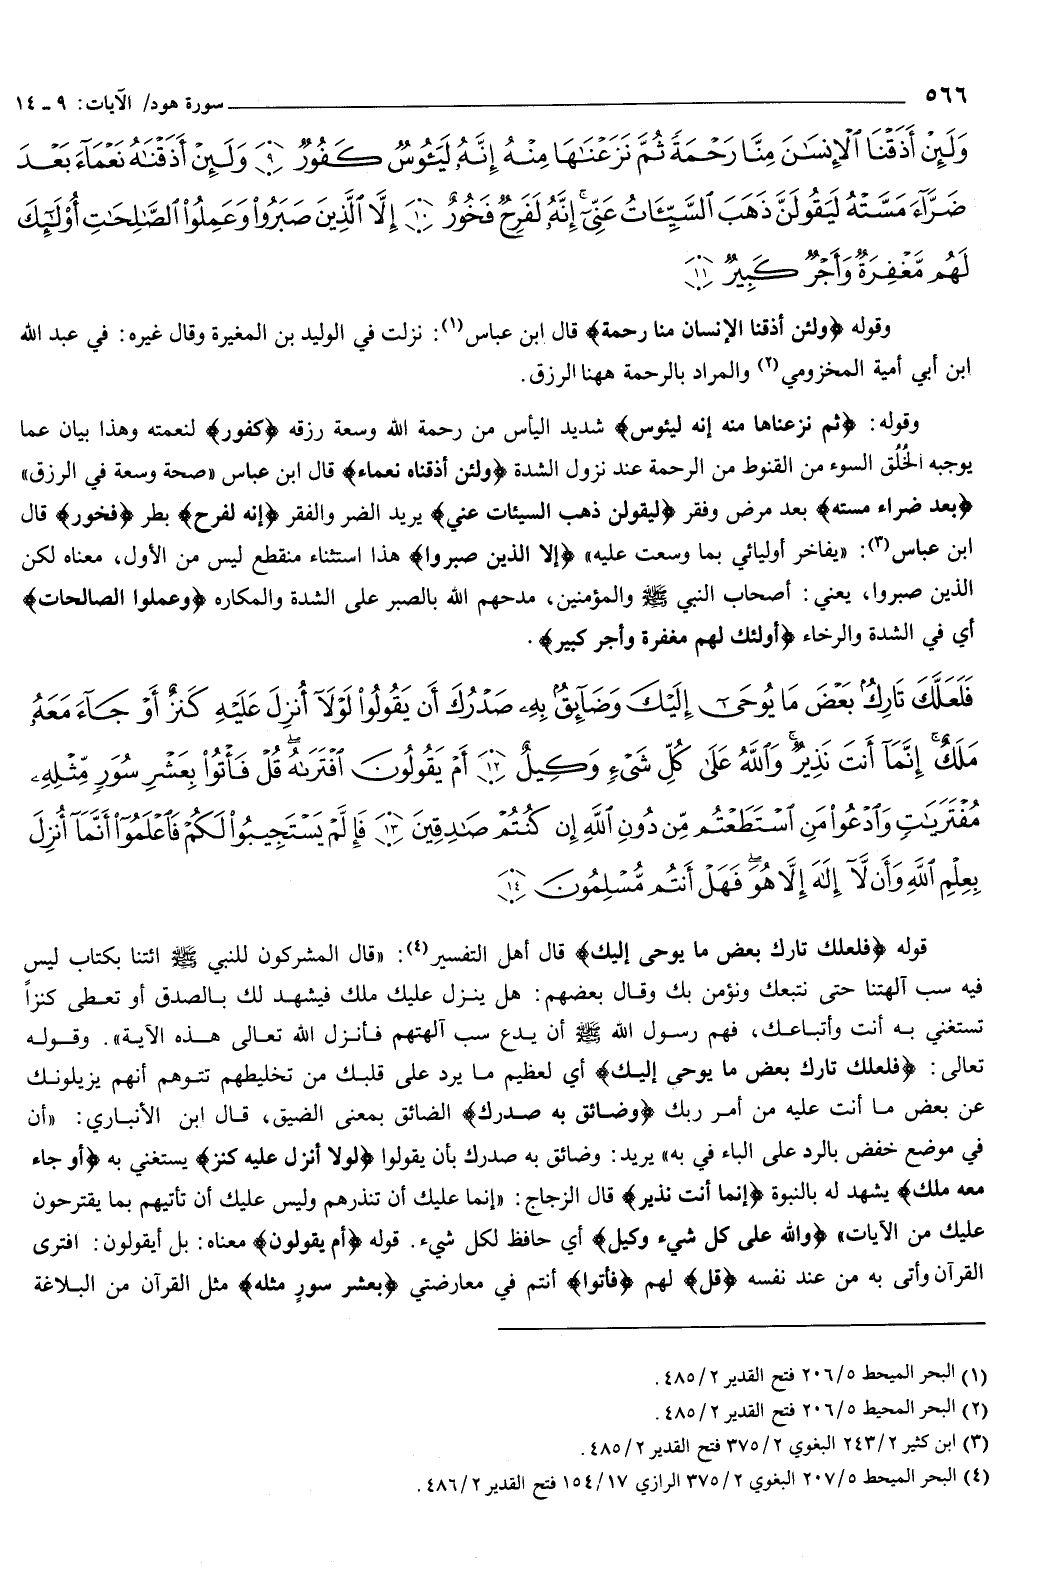 ٥٦٦ سورة هود/ الآيات: ٩ ـ ١٤
وَلَئِنْ أَذَقْنَا ٱلْإِنسَٰنَ مِنَّا رَحْمَةً ثُمَّ نَزَعْنَٰهَا مِنْهُ إِنَّهُۥ لَيَـُٔوسٌ كَفُورٌ ٩ وَلَئِنْ أَذَقْنَٰهُ نَعْمَآءَ بَعْدَ
ضَرَّآءَ مَسَّتْهُ لَيَقُولَنَّ ذَهَبَ ٱلسَّيِّـَٔاتُ عَنِّىٓ ۚ إِنَّهُۥ لَفَرِحٌ فَخُورٌ ١٠ إِلَّا ٱلَّذِينَ صَبَرُوا۟ وَعَمِلُوا۟ ٱلصَّٰلِحَٰتِ أُو۟لَٰٓئِكَ
لَهُم مَّغْفِرَةٌ وَأَجْرٌ كَبِيرٌ ١١
وقوله ﴿ولئن أذقنا الإنسان منا رحمة﴾ قال ابن عباس(١): نزلت في الوليد بن المغيرة وقال غيره: في عبد الله
ابن أبي أمية المخزومي(٢) والمراد بالرحمة ههنا الرزق.
وقوله: ﴿ثم نزعناها منه إنه ليئوس﴾ شديد اليأس من رحمة الله وسعة رزقه ﴿كفور﴾ لنعمته وهذا بيان عما
يوجبه الخُلُق السوء من القنوط من الرحمة عند نزول الشدة ﴿ولئن أذقناه نعماء﴾ قال ابن عباس «صحة وسعة في الرزق»
﴿بعد ضراء مسته﴾ بعد مرض وفقر ﴿ليقولن ذهب السيئات عني﴾ يريد الضر والفقر ﴿إنه لفرح﴾ بطر ﴿فخور﴾ قال
ابن عباس(٣): «يفاخر أوليائي بما وسعت عليه» ﴿إلا الذين صبروا﴾ هذا استثناء منقطع ليس من الأول، معناه لكن
الذين صبروا، يعني: أصحاب النبي ﷺ والمؤمنين، مدحهم الله بالصبر على الشدة والمكاره ﴿وعملوا الصالحات﴾
أي في الشدة والرخاء ﴿أولئك لهم مغفرة وأجر كبير﴾.
فَلَعَلَّكَ تَارِكٌۢ بَعْضَ مَا يُوحَىٰٓ إِلَيْكَ وَضَآئِقٌۢ بِهِۦ صَدْرُكَ أَن يَقُولُوا۟ لَوْلَآ أُنزِلَ عَلَيْهِ كَنزٌ أَوْ جَآءَ مَعَهُۥ
مَلَكٌ ۚ إِنَّمَآ أَنتَ نَذِيرٌ ۚ وَٱللَّهُ عَلَىٰ كُلِّ شَىْءٍ وَكِيلٌ ١٢ أَمْ يَقُولُونَ ٱفْتَرَىٰهُ ۖ قُلْ فَأْتُوا۟ بِعَشْرِ سُوَرٍ مِّثْلِهِۦ
مُفْتَرَيَٰتٍ وَٱدْعُوا۟ مَنِ ٱسْتَطَعْتُم مِّن دُونِ ٱللَّهِ إِن كُنتُمْ صَٰدِقِينَ ١٣ فَإِلَّمْ يَسْتَجِيبُوا۟ لَكُمْ فَٱعْلَمُوٓا۟ أَنَّمَآ أُنزِلَ
بِعِلْمِ ٱللَّهِ وَأَن لَّآ إِلَٰهَ إِلَّا هُوَ ۖ فَهَلْ أَنتُم مُّسْلِمُونَ ١٤
قوله ﴿فلعلك تارك بعض ما يوحى إليك﴾ قال أهل التفسير(٤): «قال المشركون للنبي ﷺ ائتنا بكتاب ليس
فيه سب آلهتنا حتى نتبعك ونؤمن بك وقال بعضهم: هل ينزل عليك ملك فيشهد لك بالصدق أو تعطى كنزاً
تستغني به أنت وأتباعك، فهم رسول الله ﷺ أن يدع سب آلهتهم فأنزل الله تعالى هذه الآية». وقوله
تعالى: ﴿فلعلك تارك بعض ما يوحى إليك﴾ أي لعظيم ما يرد على قلبك من تخليطهم تتوهم أنهم يزيلونك
عن بعض ما أنت عليه من أمر ربك ﴿وضائق به صدرك﴾ الضائق بمعنى الضيق، قال ابن الأنباري: «أن
في موضع خفض بالرد على الباء في به» يريد: وضائق به صدرك بأن يقولوا ﴿لولا أنزل عليه كنز﴾ يستغني به ﴿أو جاء
معه ملك﴾ يشهد له بالنبوة ﴿إنما أنت نذير﴾ قال الزجاج: «إنما عليك أن تنذرهم وليس عليك أن تأتيهم بما يقترحون
عليك من الآيات» ﴿والله على كل شيء وكيل﴾ أي حافظ لكل شيء. قوله ﴿أم يقولون﴾ معناه: بل أيقولون: افترى
القرآن وأتى به من عند نفسه ﴿قل﴾ لهم ﴿فأتوا﴾ أنتم في معارضتي ﴿بعشر سورٍ مثله﴾ مثل القرآن من البلاغة
(١) البحر الميحط ٢٠٦/٥ فتح القدير ٤٨٥/٢.
(٢) البحر المحيط ٢٠٦/٥ فتح القدير ٤٨٥/٢.
(٣) ابن كثير ٢٤٣/٢ البغوي ٣٧٥/٢ فتح القدير ٤٨٥/٢.
(٤) البحر الميحط ٢٠٧/٥ البغوي ٣٧٥/٢ الرازي ١٥٤/١٧ فتح القدير ٤٨٦/٢.